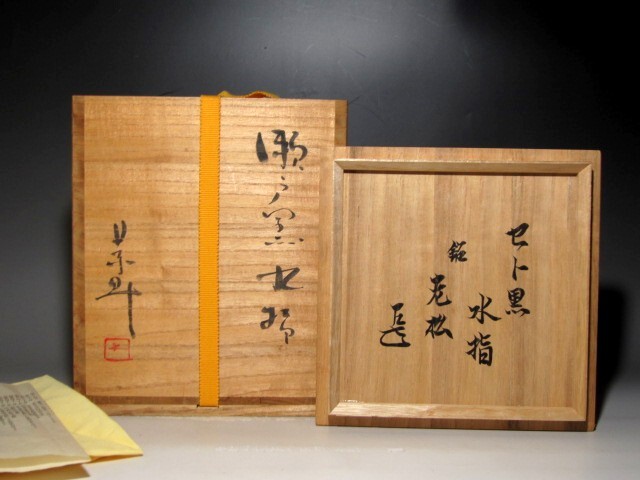 瀬戸黒水指
景昇
セト黒
水指
銘
老松